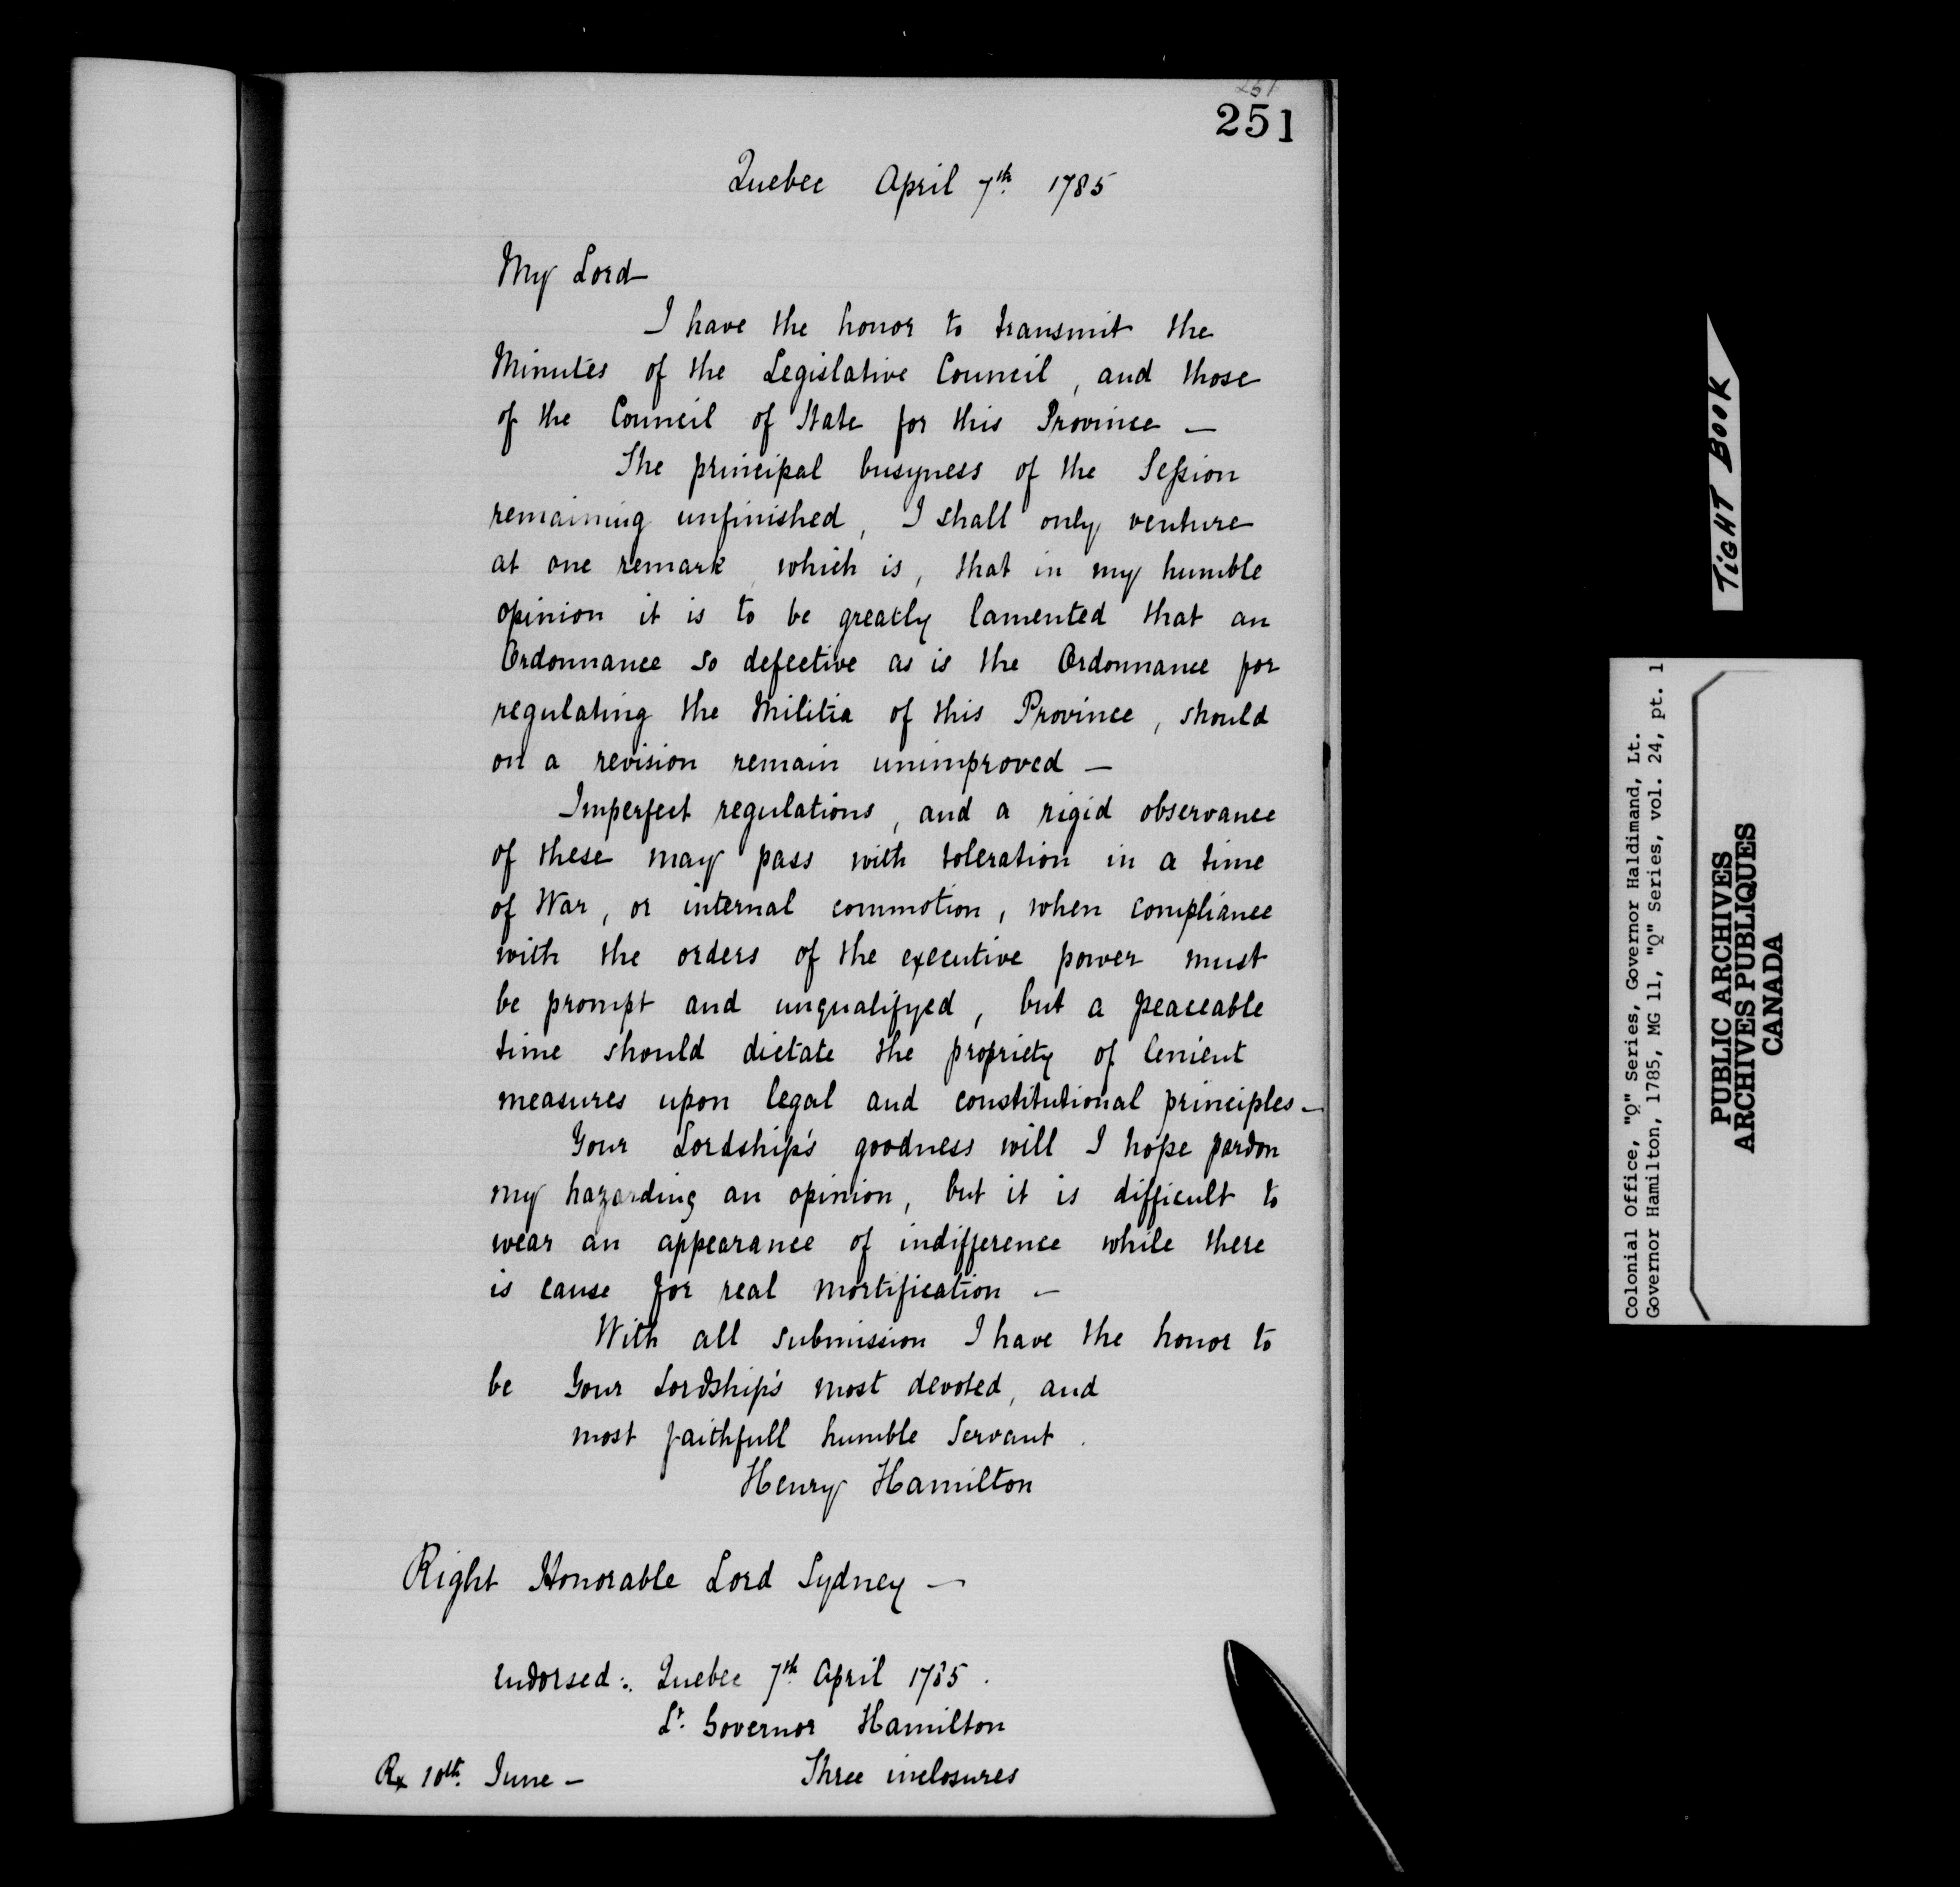 251
251
Quebec April 7th 1785
My Lord
I have the honor to transmit the
Minutes of the Legislative Council, and those
of the Council of State for this Province —
The principal busyness of the Session
remaining unfinished, I shall only venture
at one remark, which is, that in my humble
opinion it is to be greatly lamented that an
Ordonnance so defective as is the Ordonnance for
regulating the Militia of this Province, should
on a revision remain unimproved —
Imperfect regulations, and a rigid observance
of these may pass with toleration in a time
of War, or internal commotion, when compliance
with the orders of the executive power must
be prompt and unqualifyed, but a peaceable
time should dictate the propriety of lenient
measures upon legal and constitutional principles —
Your Lordship's goodness will I hope pardon
my hazarding an opinion, but it is difficult to
wear an appearance of indifference while there
is cause for real mortification —
With all submission I have the honor to
be Your Lordship's most devoted, and
most faithfull humble Servant.
Henry Hamilton
Right Honorable Lord Sydney —
Endorsed:. Quebec 7th April 1785.
Lt. Governor Hamilton
Rx 10th. June — Three inclosures
TIGHT BOOK
Colonial Office, "Q" Series, Governor Haldimand, Lt.
Governor Hamilton, 1785, MG 11, "Q" Series, vol. 24, pt. 1
PUBLIC ARCHIVES
ARCHIVES PUBLIQUES
CANADA